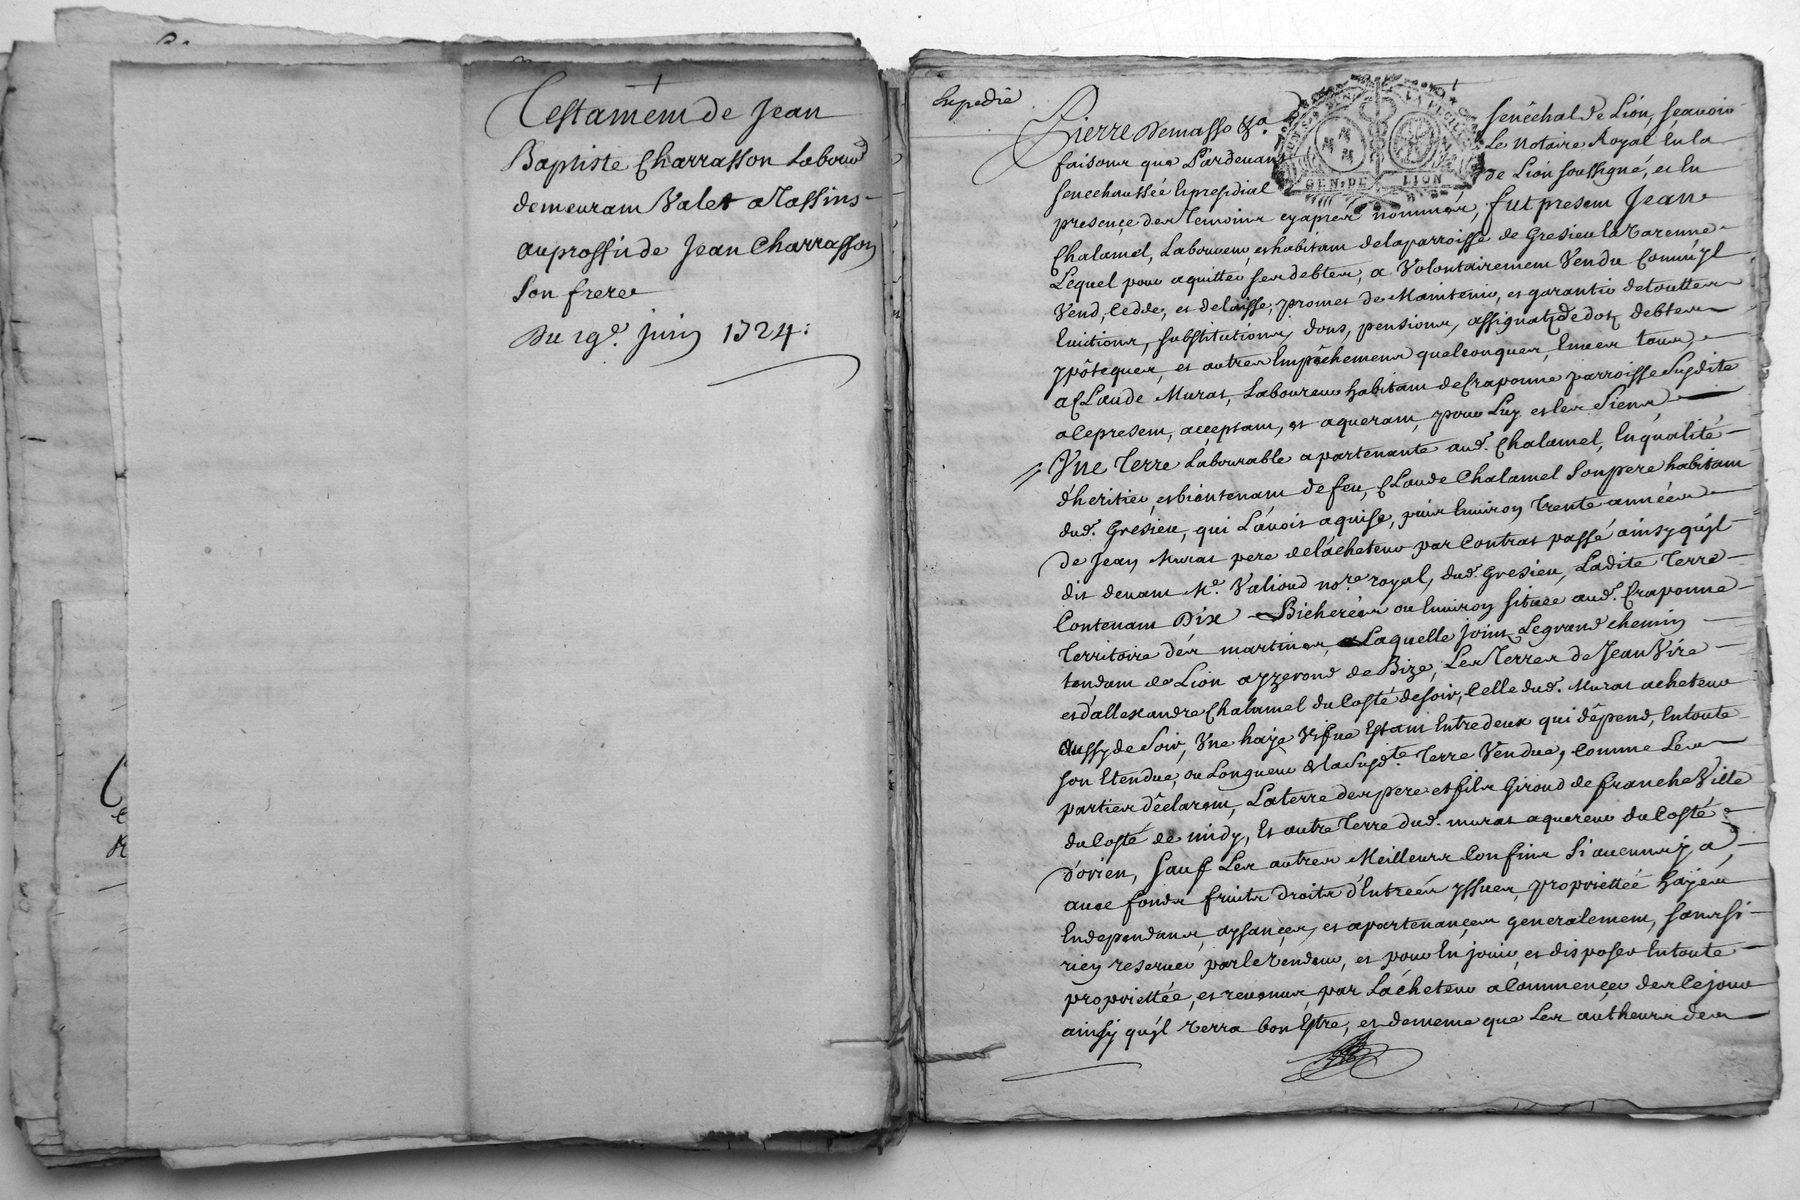 Testament de Jean
Baptiste Charrasson Labour
demeurant Valet a Tassins
au proffit de Jean Charrasson
Son frere
Du 19e. juin 1724.
Expedié
Pierre Demasso &a. Senéchal de Lion, scavoir
faisons que Pardevant Le Notaire Royal En la
senechaussée Epresidial de Lion soussigné, et En
presence des Temoins cyaprés nommés, fut present Jean
Chalamel, Laboureur, et habitant de la parroisse de Gresieu la Varenne
Lequel pour aquitter ses debtes, a Volontairement Vendu Comm'yl
Vend, Cedde, et delaisse, promet de Maintenir, et garantir de touttes
Evictions, substitutions, dons, pensions, assignatz de dot, debtes
ypôteques, et autres Empêchemens quelconques, Envers tous,
a Claude Murat, Laboureur habitant de Craponne parroisse Susdite
a Ce present, acceptant, et aquerant, pour Luy et les Siens
Vne Terre Labourable apartenante aud. Chalamel, En qualité
d'heritier, et bientenant de feu, Claude Chalamel Son pere habitant
dud. Gresieu, qui L'avoit aquise, puis Environ Trente années
de Jean Murat pere de l'acheteur par Contrat passé ainsy qu'yl
dit devant Me. Valioud nore royal, dud. Gresieu, Ladite Terre
Contenant Dix Bicherées ou Environ Située aud. Craponne
Territoire dés martines, a Laquelle joint Le grand chemin
tendant de Lion a yzerond de Bize, Les Terres de Jean Viré
et d'allexandre Chalamel du Costé de Soir, Celle dud. Murat acheteur
Aussy de Soir, Vne haye Vifve Estant Entredeux qui dêpend, En toute
son Etendue, ou Longueur de la Susdte. Terre Vendue, Comme Les
parties dêclarent, La terre des pere et fils Giroud de francheVille
du Costé de midy, Et autre Terre dud. murat aquereur du Costé
d'orien, Sauf Les autres Meilleurs Confins Si aucuns y a,
avec fonds fruits droits d'Entreés yssues, propriettée hayes
Endependans, aysançes, et apartenançes generalement, sans si
rien reserver par le Vendeur, et pour En jouir, et disposer En toute
propriettée, et revenus, par L'acheteur a Commençer des Ce jour
ainsy qu'yl Verra bon Estre, et de meme que Les autheurs des